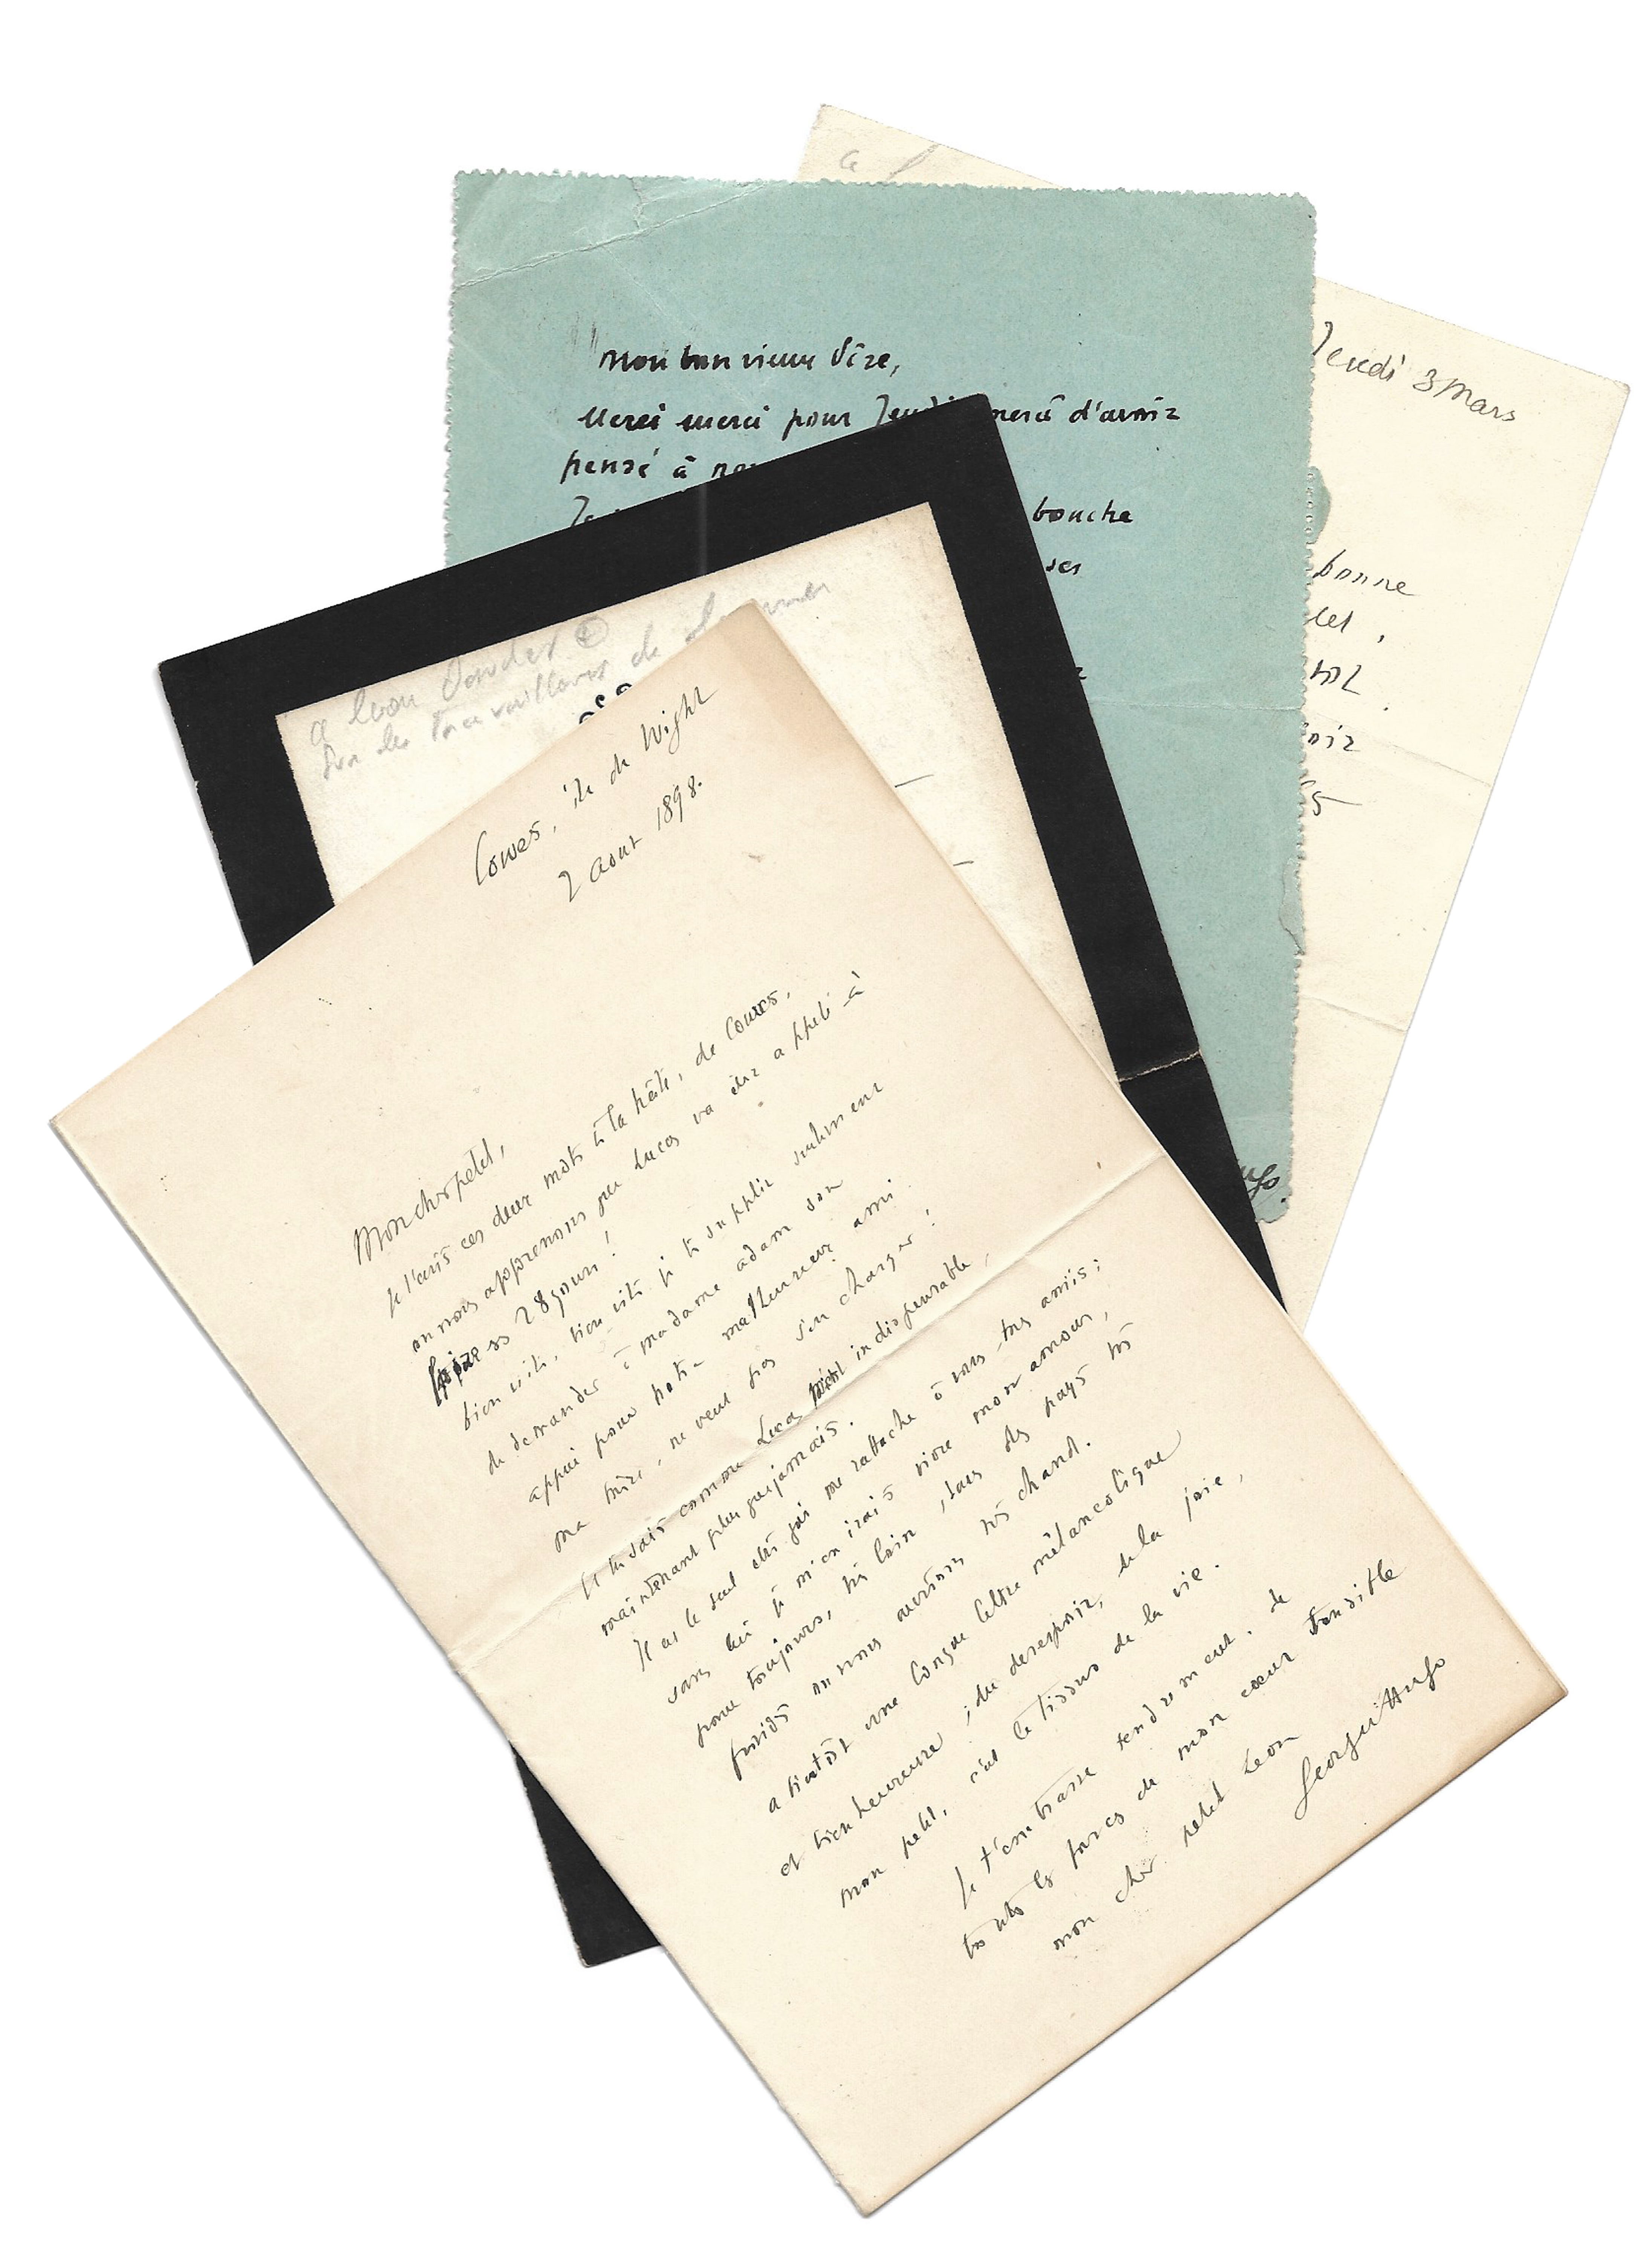 Jeudi 3 Mars
bonne
Mon bon vieux Vize,
Merci merci pour Jeudi merci d'avoir
pensé à
bouche
ses
a Leon Daudet
Sur les Travailleurs de la mer
Cowes, île de Wight
2 aout 1898.
Mon cher petit,
Je t'écris ces deux mots à la hâte, de Cowes,
on nous apprenons que Lucas va être appelé à
faire ses 28 jours !
bien vite, bien vite je te supplie seulement
de demander à madame adam son
appui pour notre malheureux ami
ma mère, ne veut pas s'en charger !
Et tu sais comme Lucas m'est indispensable,
maintenant plus que jamais.
Il est le seul être qui me rattache à vous tres amis ;
sans lui je m'en irais vivre mon amour,
pour toujours, très loin, dans des pays très
froids ou nous aurions très chaud.
a bientôt une longue lettre mélancolique
et bien heureuse ; du desespoir, de la joie,
mon petit, c'est le tissus de la vie.
Je t'embrasse tendrement. de
toutes les forces de mon coeur
mon cher petit Leon
Georges Hugo